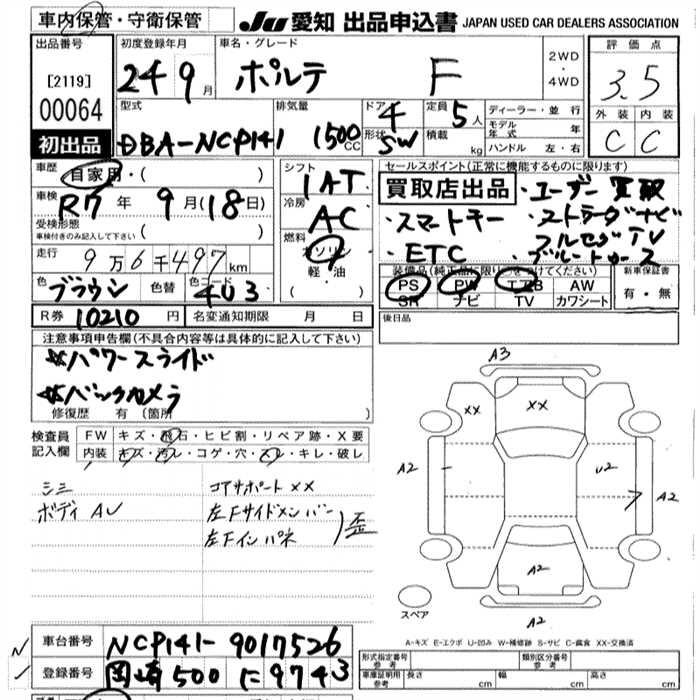 車内保管・守衛保管 JU愛知 出品申込書 JAPAN USED CAR DEALERS ASSOCIATION
出品番号 初度登録年月 車名・グレード 2WD・4WD 評価点
[2119] 24 9月 ポルテ F 3.5
00064 型式 排気量 ドア 4 定員 5人 ディーラー・並行 外装 内装
初出品 DBA-NCP141 1500CC 形状 5W 積載 kg モデル年式 年 C C
ハンドル 左・右
車歴 自家用・( ) シフト 1AT セールスポイント(正常に機能するものに限ります)
車検 R7年 9月(18日) 冷房 AC 買取店出品・ユーザー買取
受検形態 車検付きのみ記入して下さい ( ) 燃料 ガソリン 軽・油 ( ) ・スマートキー ・ストラーダナビ
・ETC フルセグTV
・ブルートゥース
走行 9万6千497km 装備品(純正品に限り○をつけてください) 新車保証書
色 ブラウン 色替 色コード 4U3 PS PW エアB AW 有・無
SR ナビ TV カワシート
R券 10210円 名変通知期限 月 日 後日品
注意事項申告欄(不具合内容等は具体的に記入して下さい)
パワースライド
バックカメラ
修復歴 有(箇所 )
検査員記入欄 FW キズ・飛石・ヒビ割・リペア跡・X要
内装 キズ・汚レ・コゲ・穴・スレ・キレ・破レ
シミ コアサポートXX
ボディAU 左Fサイドメンバー
左Fインパネ )歪
A3
XX XX
A2 U2 A2
A2
スペア A2
A-キズ E-エクボ U-凹み W-補修跡 S-サビ C-腐食 XX-交換済
車台番号 NCP141-9017526 形式指定番号 参考 類別区分番号 参考
登録番号 岡崎 500 に 9743 車庫証明用 参考 長さ cm 幅 cm 高さ cm